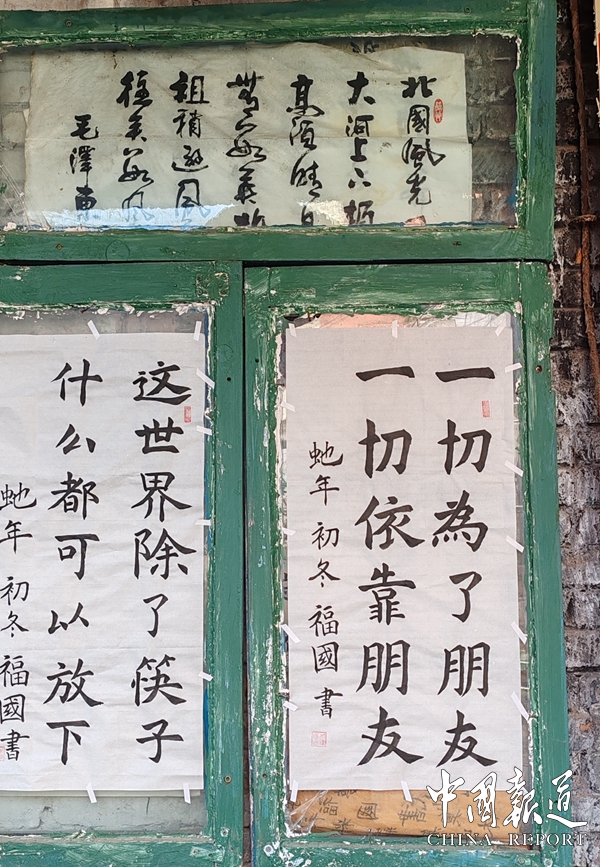 北國風光
大河上下頓
高須晴日
無數英雄
祖稍遜風
往矣數風
毛澤東
一切為了朋友
一切依靠朋友
虵年 初冬 福國 書
这世界除了筷子
什么都可以放下
虵年 初冬 福國書
中國報道
CHINA REPORT